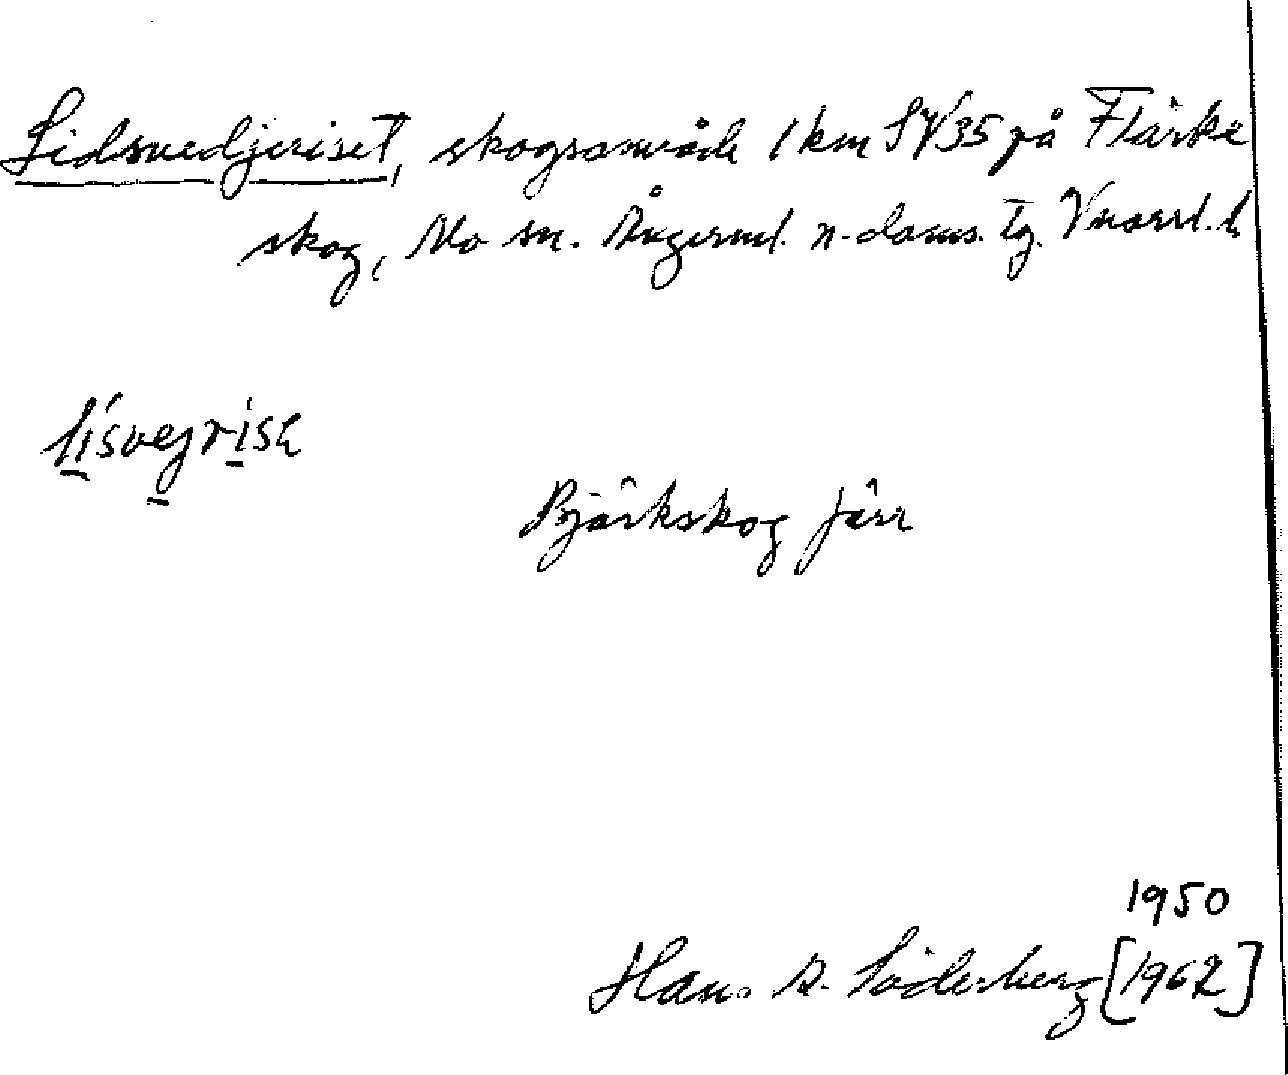 Lidsvedjeriset, skogsområde 1 km SV35 på Flärke
skog, Mo sn. Ångerml. n. doms. tg. Vnorrl. l
lísvejrisə
Björkskog förr
1950
Hans A. Söderberg [1962]